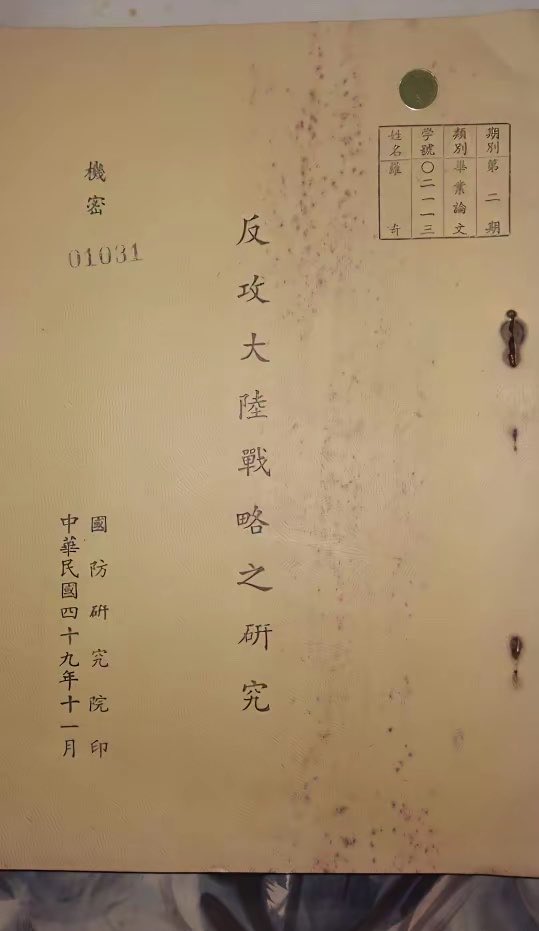 期別 第二期
類別 畢業論文
學號 〇二一一三
姓名 羅奇
反攻大陸戰略之研究
機密
01031
國防研究院印
中華民國四十九年十一月